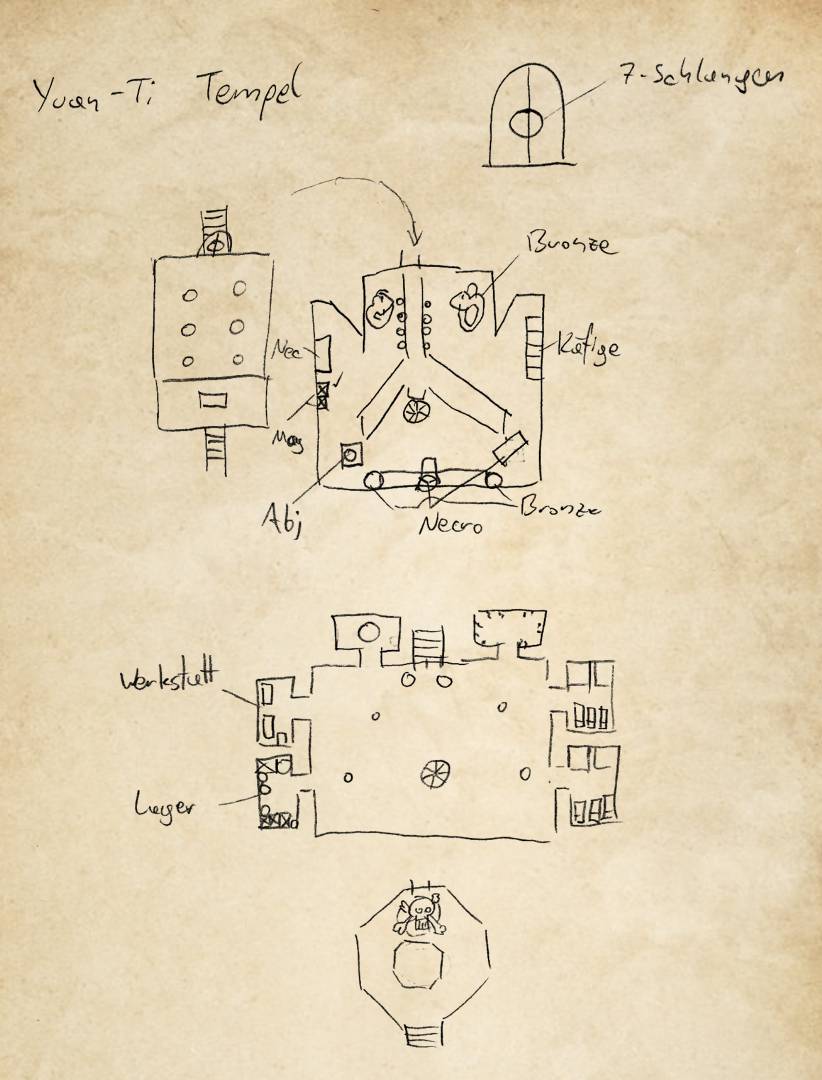 Yuan-Ti Tempel
7-Schlangen
Bronze
Nec
Käfige
Mag
Abj
Necro
Bronze
Werkstatt
Lager